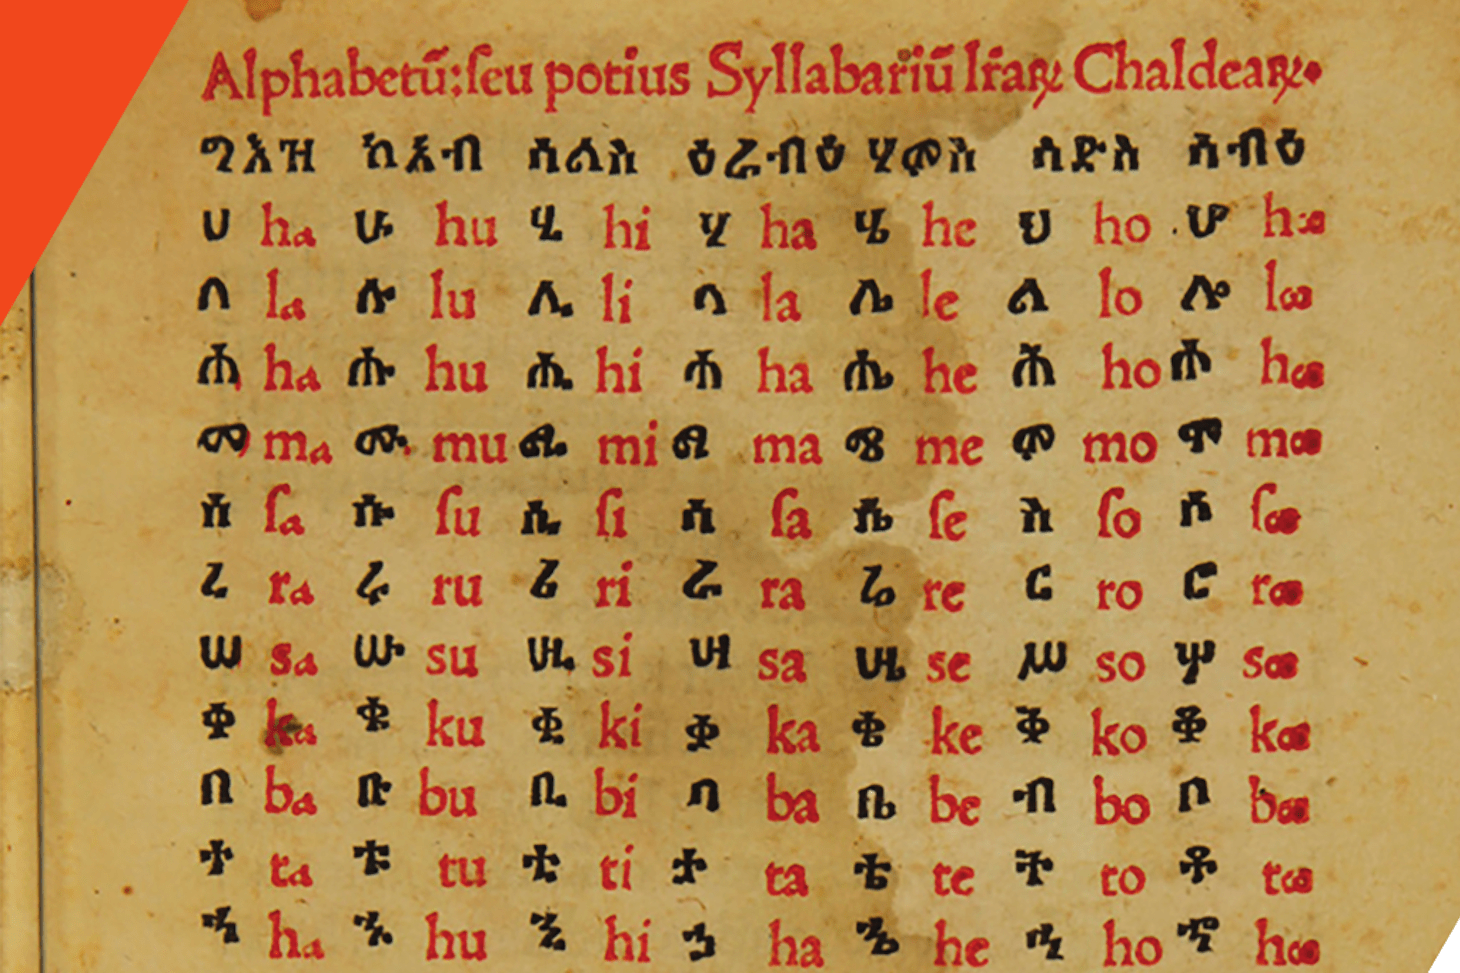 Alphabetū:ſeu potius Syllabariū lr̄aꝝ Chaldeaꝝ.
ግእዝ ካእብ ሳልስ ዕራብዕ ሃምስ ሳድስ ሳብዕ
ሀ ha ሁ hu ሂ hi ሃ ha ሄ he ህ ho ሆ hꝏ
ለ la ሉ lu ሊ li ላ la ሌ le ል lo ሎ lꝏ
ሐ ha ሑ hu ሒ hi ሓ ha ሔ he ሕ ho ሖ hꝏ
መ ma ሙ mu ሚ mi ማ ma ሜ me ም mo ሞ mꝏ
ሰ ſa ሱ ſu ሲ ſi ሳ ſa ሴ ſe ስ ſo ሶ ſꝏ
ረ ra ሩ ru ሪ ri ራ ra ሬ re ር ro ሮ rꝏ
ሠ sa ሡ su ሢ si ሣ sa ሤ se ሥ so ሦ sꝏ
ቀ ka ቁ ku ቂ ki ቃ ka ቄ ke ቅ ko ቆ kꝏ
በ ba ቡ bu ቢ bi ባ ba ቤ be ብ bo ቦ bꝏ
ተ ta ቱ tu ቲ ti ታ ta ቴ te ት to ቶ tꝏ
ኀ ha ኁ hu ኂ hi ኃ ha ኄ he ኅ ho ኆ hꝏ